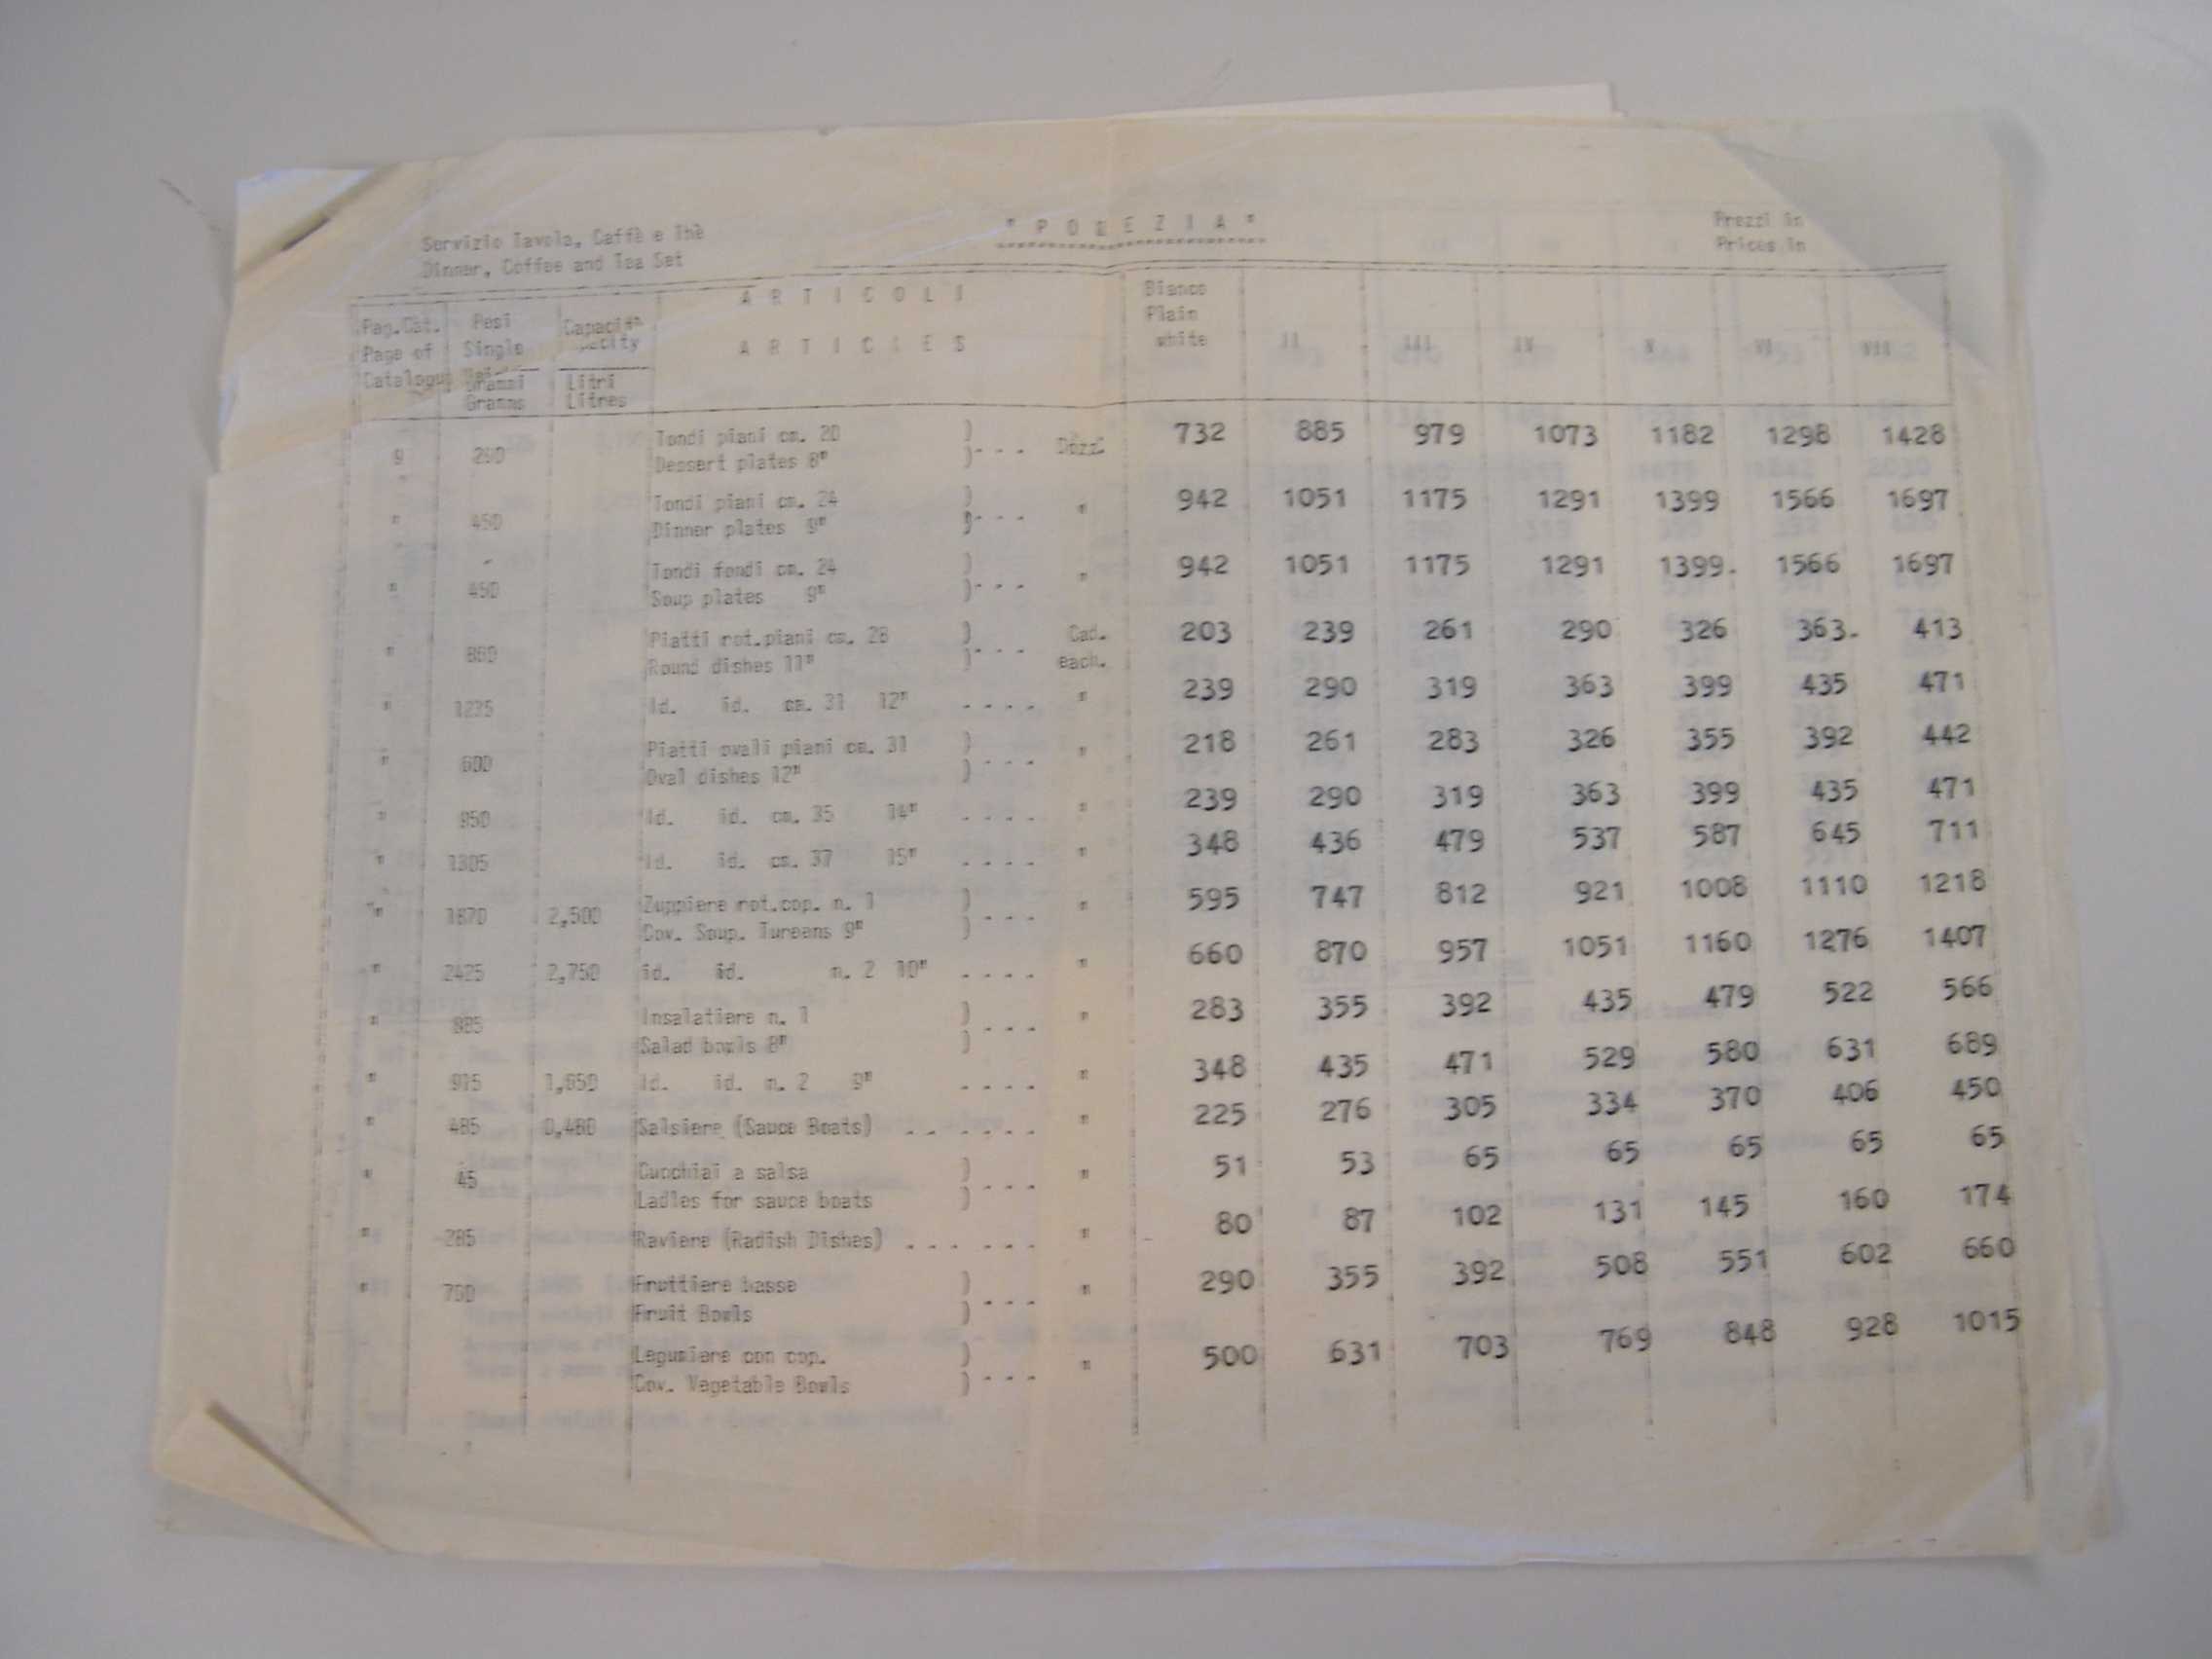 Servizio Tavola, Caffè e Thè
Dinner, Coffee and Tea Set
Prezzi in
Prices in
Pag.Cat.
Page of
Catalogue
Pesi
Single
Grammi
Gramms
Litri
Litres
A R T I C O L I
A R T I C L E S
Bianco
Plain
white
II III IV V VI VII
9 260 Tondi piani cm. 20 ) ... Dozz. 732 885 979 1073 1182 1298 1428
Dessert plates 8" )
" 450 Tondi piani cm. 24 ) ... " 942 1051 1175 1291 1399 1566 1697
Dinner plates 9" )
" 450 Tondi fondi cm. 24 ) ... " 942 1051 1175 1291 1399. 1566 1697
Soup plates 9" )
" 860 Piatti rot.piani cm. 28 ) ... Cad. 203 239 261 290 326 363. 413
Round dishes 11" ) each.
" 1235 Id. id. cm. 31 12" .... " 239 290 319 363 399 435 471
" 600 Piatti ovali piani cm. 31 ) ... " 218 261 283 326 355 392 442
Oval dishes 12" )
" 950 Id. id. cm. 35 14" .... " 239 290 319 363 399 435 471
" 1305 Id. id. cm. 37 15" .... " 348 436 479 537 587 645 711
" 1870 2,500 Zuppiere rot.cop. n. 1 ) ... " 595 747 812 921 1008 1110 1218
Cov. Soup. Tureens 9" )
" 2425 2,750 id. id. n. 2 10" .... " 660 870 957 1051 1160 1276 1407
" 885 Insalatiere n. 1 ) ... " 283 355 392 435 479 522 566
Salad bowls 8" )
" 915 1,650 Id. id. n. 2 9" .... " 348 435 471 529 580 631 689
" 485 0,480 Salsiere (Sauce Boats) .. .... " 225 276 305 334 370 406 450
" 45 Cucchiai a salsa ) ... " 51 53 65 65 65 65 65
Ladles for sauce boats )
" 285 Raviere (Radish Dishes) ... ... " 80 87 102 131 145 160 174
" 750 Fruttiere basse ) ... " 290 355 392 508 551 602 660
Fruit Bowls )
Legumiere con cop. ) ... " 500 631 703 769 848 928 1015
Cov. Vegetable Bowls )